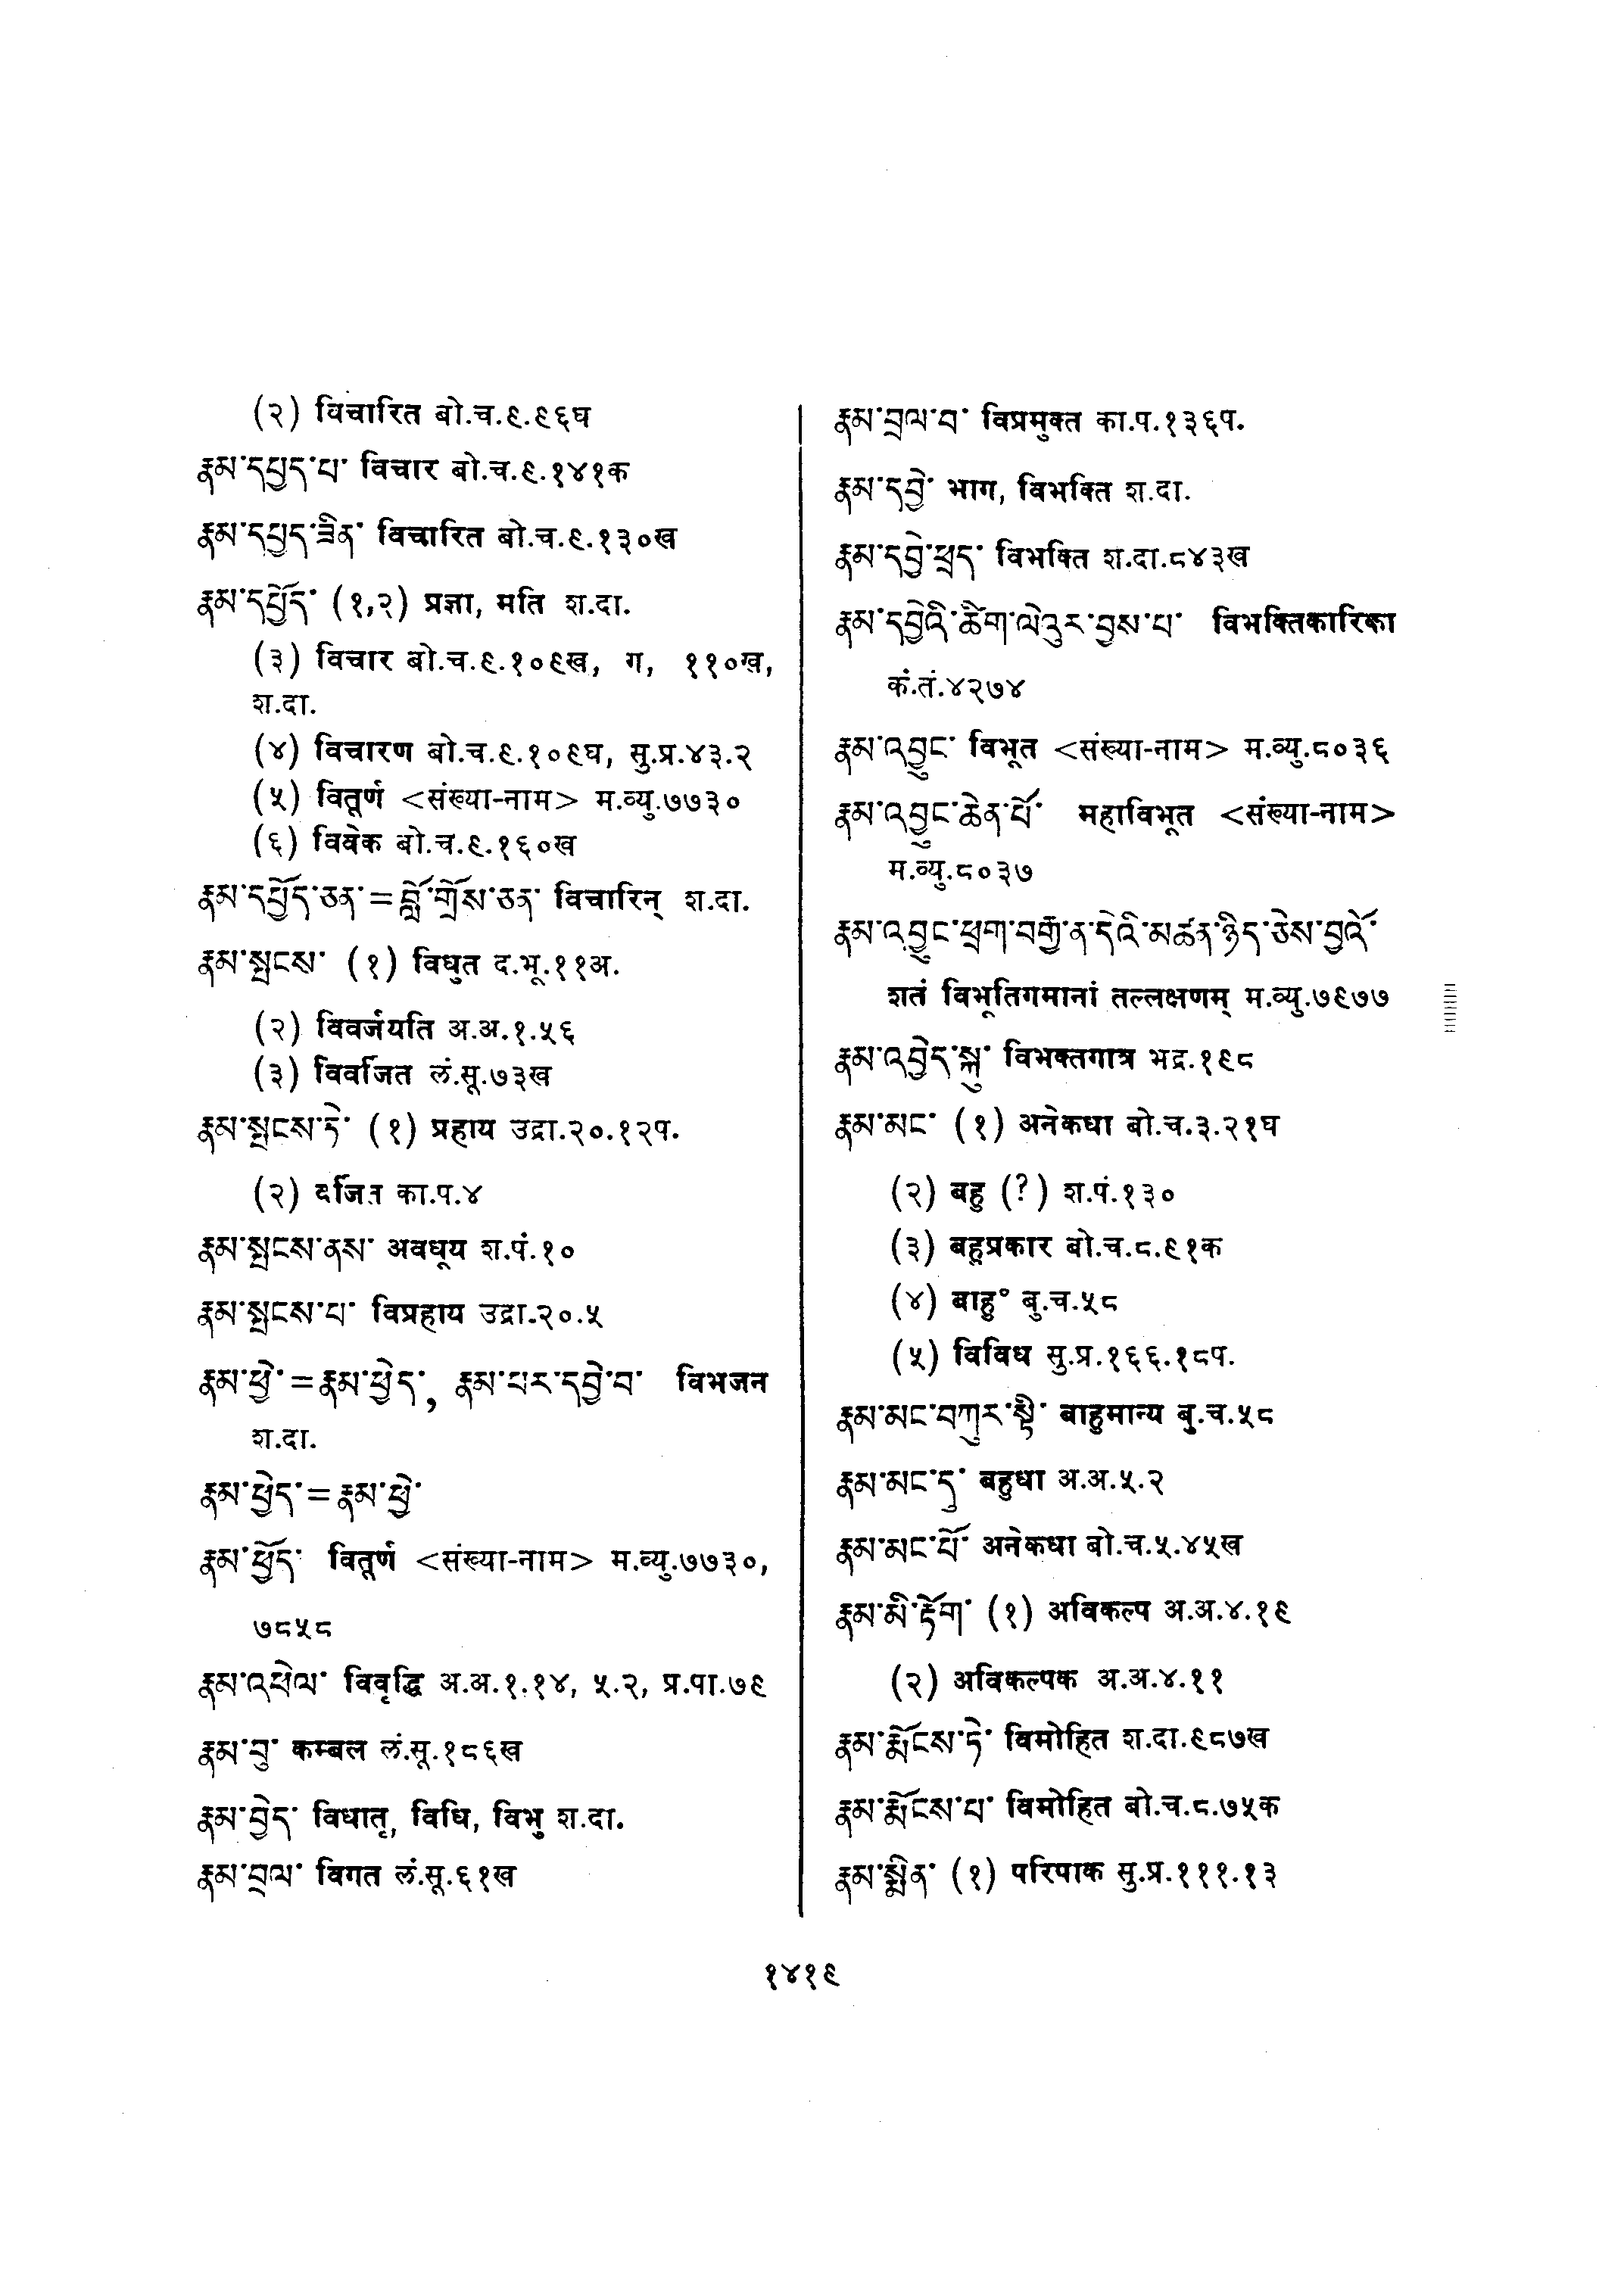 (२) विचारित बो.च.९.९६घ
རྣམ་དཔྱད་པ་ विचार बो.च.९.१४१क
རྣམ་དཔྱད་ཟིན་ विचारित बो.च.९.१३०ख
རྣམ་དཔྱོད་ (१,२) प्रज्ञा, मति श.दा.
(३) विचार बो.च.९.१०९ख, ग, ११०ख,
श.दा.
(४) विचारण बो.च.९.१०९घ, सु.प्र.४३.२
(५) वितूर्ण <संख्या-नाम> म.व्यु.७७३०
(६) विवेक बो.च.९.१६०ख
རྣམ་དཔྱོད་ཅན་=བློ་གྲོས་ཅན་ विचारिन् श.दा.
རྣམ་སྤངས་ (१) विधुत द.भू.११अ.
(२) विवर्जयति अ.अ.१.५६
(३) विवर्जित लं.सू.७३ख
རྣམ་སྤངས་ཏེ་ (१) प्रहाय उद्रा.२०.१२प.
(२) वर्जित का.प.४
རྣམ་སྤངས་ནས་ अवधूय श.पं.१०
རྣམ་སྤངས་པ་ विप्रहाय उद्रा.२०.५
རྣམ་ཕྱེ་=རྣམ་ཕྱེད་, རྣམ་པར་དབྱེ་བ་ विभजन
श.दा.
རྣམ་ཕྱེད་=རྣམ་ཕྱེ་
རྣམ་ཕྱོད་ वितूर्ण <संख्या-नाम> म.व्यु.७७३०,
७८५८
རྣམ་འཕེལ་ विवृद्धि अ.अ.१.१४, ५.२, प्र.पा.७९
རྣམ་བུ་ कम्बल लं.सू.१८६ख
རྣམ་བྱེད་ विधातृ, विधि, विभु श.दा.
རྣམ་བྲལ་ विगत लं.सू.६१ख
རྣམ་བྲལ་བ་ विप्रमुक्त का.प.१३६प.
རྣམ་དབྱེ་ भाग, विभक्ति श.दा.
རྣམ་དབྱེ་ཕྲད་ विभक्ति श.दा.८४३ख
རྣམ་དབྱེའི་ཚིག་ལེའུར་བྱས་པ་ विभक्तिकारिका
कं.तं.४२७४
རྣམ་འབྱུང་ विभूत <संख्या-नाम> म.व्यु.८०३६
རྣམ་འབྱུང་ཆེན་པོ་ महाविभूत <संख्या-नाम>
म.व्यु.८०३७
རྣམ་འབྱུང་ཕྲག་བརྒྱ་ན་དེའི་མཚན་ཉིད་ཅེས་བྱའོ་
शतं विभूतिगमानां तल्लक्षणम् म.व्यु.७९७७
རྣམ་འབྱེད་སྐུ་ विभक्तगात्र भद्र.१९८
རྣམ་མང་ (१) अनेकधा बो.च.३.२१घ
(२) बहु (?) श.पं.१३०
(३) बहुप्रकार बो.च.८.९१क
(४) बाहु° बु.च.५८
(५) विविध सु.प्र.१६६.१८प.
རྣམ་མང་བཀུར་སྟི་ बाहुमान्य बु.च.५८
རྣམ་མང་དུ་ बहुधा अ.अ.५.२
རྣམ་མང་པོ་ अनेकधा बो.च.५.४५ख
རྣམ་མི་རྟོག་ (१) अविकल्प अ.अ.४.१९
(२) अविकल्पक अ.अ.४.११
རྣམ་རྨོངས་ཏེ་ विमोहित श.दा.९८७ख
རྣམ་རྨོངས་པ་ विमोहित बो.च.८.७५क
རྣམ་སྨིན་ (१) परिपाक सु.प्र.१११.१३
१४१९